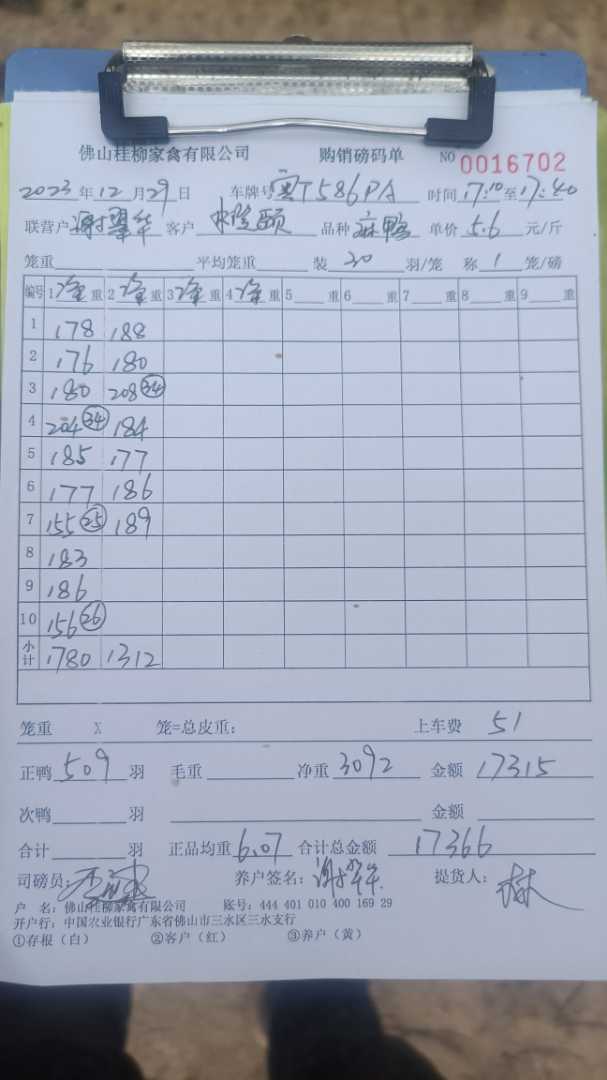 佛山桂柳家禽有限公司 购销磅码单 NO 0016702
2023年12月29日 车牌号 T586PA 时间17:10至17:40
联营户 谢翠华 客户 颐 品种 麻鸭 单价 5.6 元/斤
笼重 平均笼重 装 30 羽/笼 称 1 笼/磅
编号 1 净重 2 净重 3 净重 4 净重 5 重 6 重 7 重 8 重 9 重
1 178 188
2 176 180
3 180 208 34
4 204 34 184
5 185 177
6 177 186
7 155 25 189
8 183
9 186
10 156 26
小计 1780 1312
笼重 X 笼=总皮重: 上车费 51
正鸭 509 羽 毛重 净重 3092 金额 17315
次鸭 羽 金额
合计 羽 正品均重 6.07 合计总金额 17366
司磅员: 养户签名: 谢翠华 提货人: 林
户 名: 佛山桂柳家禽有限公司 账号: 444 401 010 400 169 29
开户行: 中国农业银行广东省佛山市三水区三水支行
①存根(白) ②客户(红) ③养户(黄)